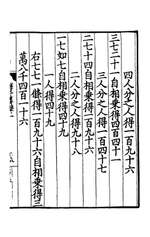 四人分之人得一百九十六
三七二十一自相乘得四百四十一
三人分之人得一百四十七
二七一十四自相乘得一百九十六
二人分之人得九十八
一七如七自相乘得四十九
一人得四十九
右七七一條得一百九十六自相乘得三
萬八千四百一十六